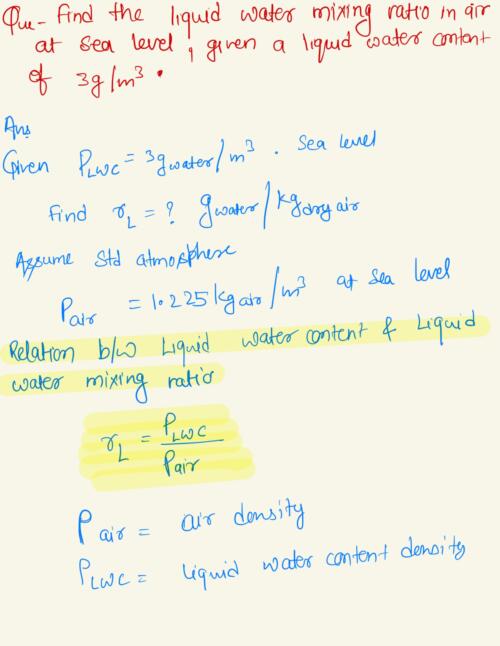 Que - Find the liquid water mixing ratio in air
at sea level, given a liquid water content
of 3g/m³.
Ans
Given ρ_LWC = 3g water/m³. Sea level
Find r_L = ? g water/kg dry air
Assume Std atmosphere
ρ_air = 1.225 kg air/m³ at sea level
Relation b/w Liquid water content & Liquid
water mixing ratio
r_L = ρ_LWC / ρ_air
ρ_air = air density
ρ_LWC = liquid water content density